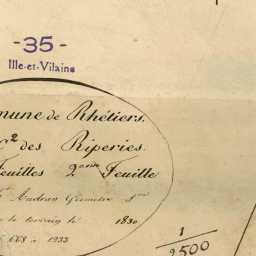 -35-
Ille-et-Vilaine
mune de Rhétiers.
des Riperies.
Feuilles 2eme Feuille
Géomètre
le terrain le 1830
668 à 1233
1
2500